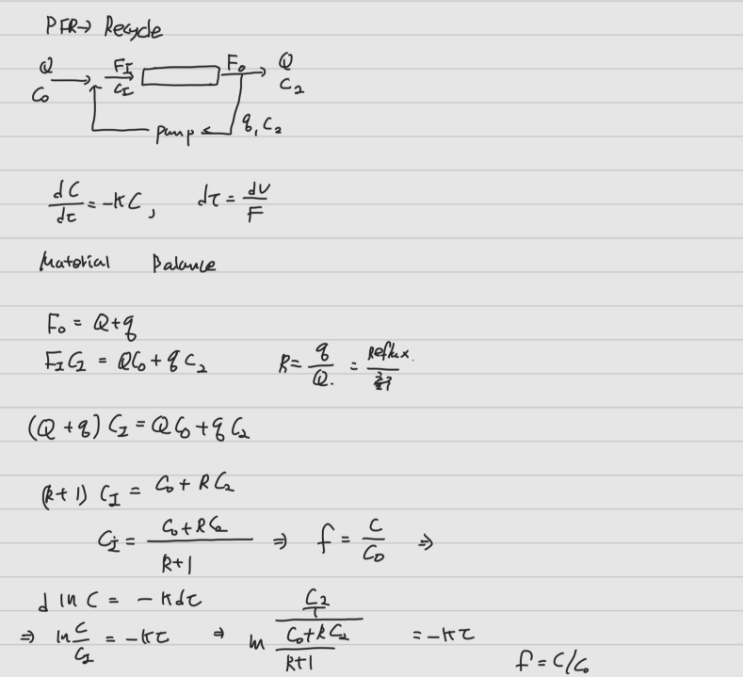 PFR → Recycle
Q F_I F_o Q
C_0 C_I C_2
pump q, C_2
dC/dτ = -KC, dτ = dV/F
Material Balance
F_o = Q+q
F_I C_I = QC_0 + qC_2 R = q/Q. = Reflux.
(Q+q) C_I = QC_0 + qC_2
(R+1) C_I = C_0 + RC_2
C_I = (C_0+RC_2)/(R+1) ⇒ f = C/C_0 ⇒
d ln C = -Kdτ
⇒ ln C/C_I = -Kτ ⇒ ln C_2/((C_0+RC_2)/(R+1)) = -Kτ
f = C/C_0